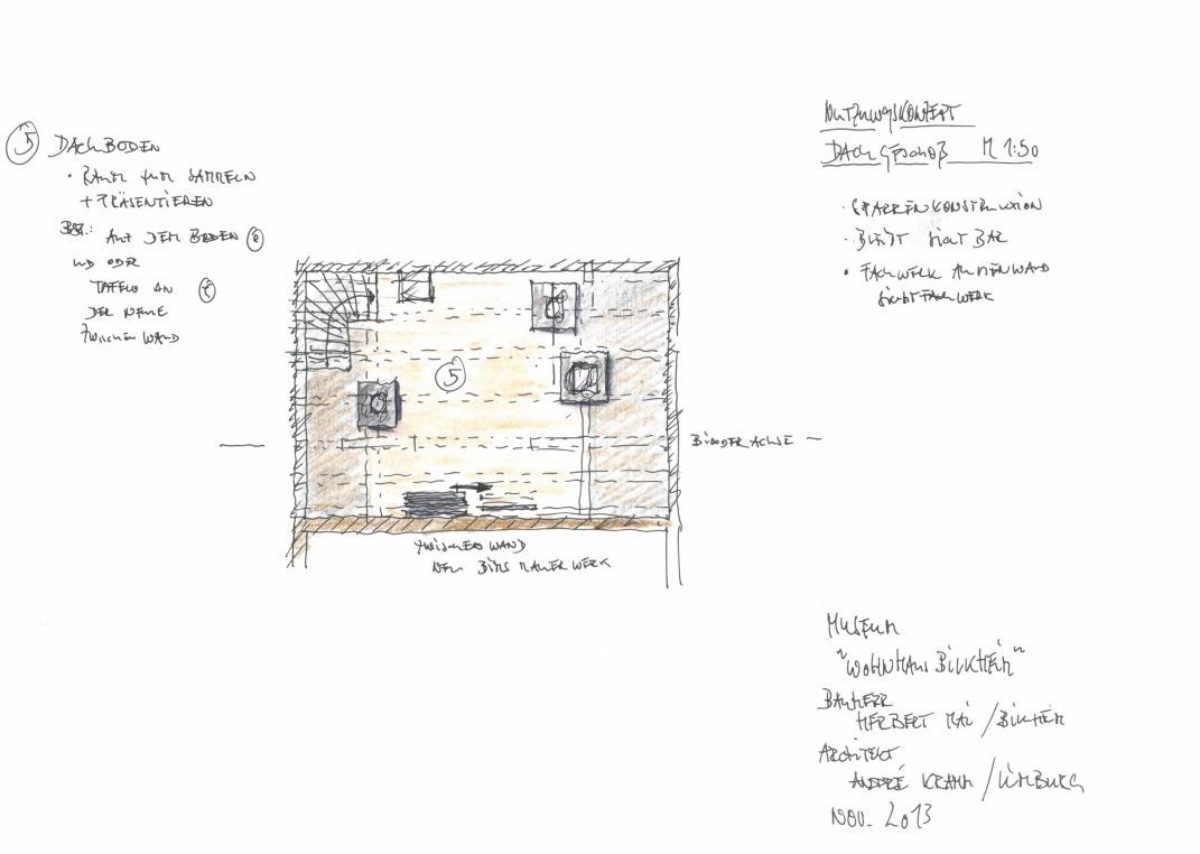 5 DACHBODEN
• RAUM ZUM SAMMELN
+ PRÄSENTIEREN
BSP.: AUF DEM BODEN
UND ODER
TAFELN AN
DER NEUE
ZWISCHENWAND
NUTZUNGSKONZEPT
DACHGESCHOß M 1:50
• SPARRENKONSTRUKTION
• BLEIBT SICHTBAR
• FACHWERK AUßENWAND
SICHTFACHWERK
5
BINDERACHSE
ZWISCHENWAND
NEU BIMS MAUERWERK
MUSEUM
"WOHNHAUS
BAUHERR
HERBERT
ARCHITEKT
ANDRÉ KRAHN / LIMBURG
NOV. 2013